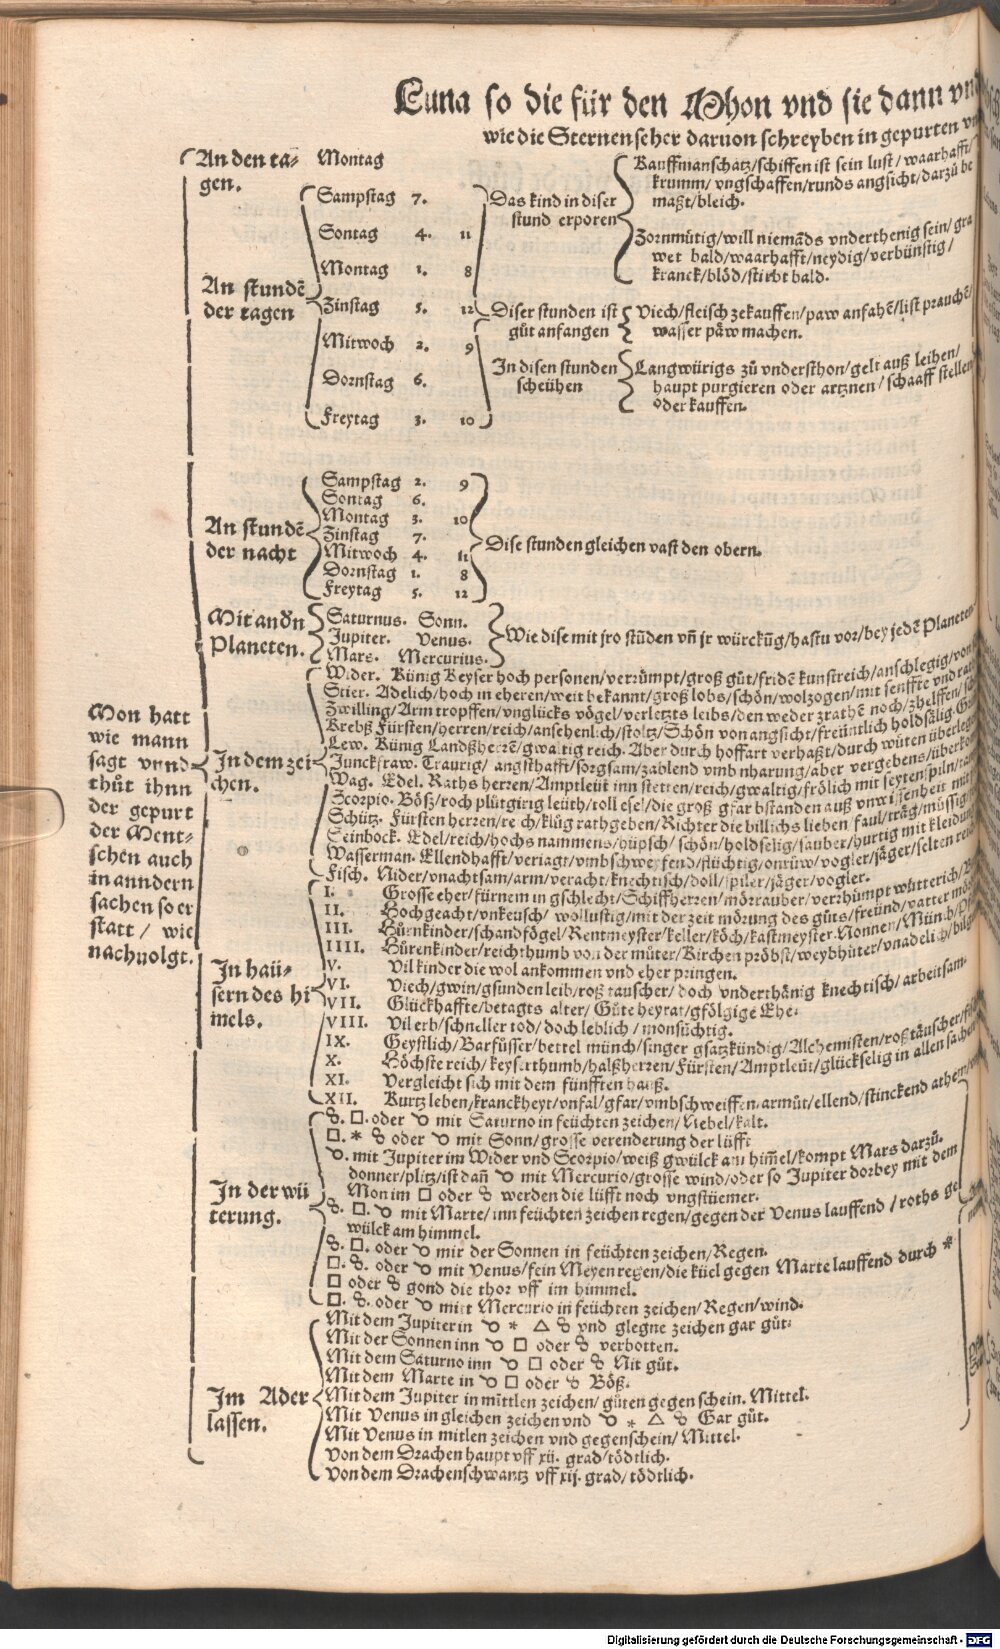 Luna so die für den Mhon vnd sie dann vn
wie die Sternenseher daruon schreyben in gepurten
An den ta-
gen.
Montag
An stundē
der tagen
Sampstag 7.
Sontag 4. 11
Montag 1. 8
Zinstag 5. 12
Mitwoch 2. 9
Dornstag 6.
Freytag 3. 10
Das kind in diser
stund erporen
Kauffmanschatz/schiffen ist sein lust/waarhafft/
krumm/vngschaffen/runds angsicht/darzů be
maßt/bleich.
Zornmütig/will niemāds vnderthenig sein/gra
wet bald/waarhafft/neydig/verbünstig/
kranck/blöd/stirbt bald.
Diser stunden ist
gůt anfangen
Viech/fleisch zekauffen/paw anfahē/list prauchē/
wasser päw machen.
In disen stunden
scheühen
Langwürigs zů vndersthon/gelt auß leihen/
haupt purgieren oder artznen/schaaff stellen
oder kauffen.
An stundē
der nacht
Sampstag 2. 9
Sontag 6.
Montag 3. 10
Zinstag 7.
Mitwoch 4. 11
Dornstag 1. 8
Freytag 5. 12
Dise stunden gleichen vast den obern.
Mit andn
Planeten.
Saturnus. Sonn.
Jupiter. Venus.
Mars. Mercurius.
Wie dise mit jro stūden vñ jr würckūg/hastu vor/bey jedē Planeten
Mon hatt
wie mann
sagt vnnd
thůt ihnn
der gepurt
der Ment-
schen auch
in anndern
sachen so er
statt / wie
nachuolgt.
In dem zei-
chen.
Wider. Künig Keyser hoch personen/verrümpt/groß gůt/fridē kunstreich/anschlegig/von
Stier. Adelich/hoch in eheren/weit bekannt/groß lobs/schön/wolzogen/mit senffte vnd
Zwilling/Arm tropffen/vnglücks vögel/verletzts leibs/den weder zrathē noch/zhelffen/
Krebß Fürsten/herren/reich/ansehenlich/stoltz/Schön von angsicht/freüntlich holdsälig.
Lew. Künig Landßherrē/gwaltig reich. Aber durch hoffart verhaßt/durch wüten
Junckfraw. Traurig/ angsthafft/sorgsam/zablend vmb nharung/aber vergebens/
Wag. Edel. Raths herren/Amptleüt inn stetten/reich/gwaltig/frölich mit seytenspiln/
Scorpio. Böß/roch plütgirig leüth/toll esel/die groß gfar bstanden auß vnwissenheit mit
Schütz. Fürsten herren/reich/klůg rathgeben/Richter die billichs lieben/faul/träg/müssig
Steinbock. Edel/reich/hochs nammens/hüpsch/schön/holdselig/sauber/hurtig mit kleidung
Wasserman. Ellendhafft/veriagt/vmbschweyfend/flüchtig/onrüw/vogler/jäger/selten
Fisch. Nider/vnachtsam/arm/veracht/knechtisch/doll/spiler/jäger/vogler.
In heü-
sern des hi
mels.
I. Grosse eher/fürnem in gschlecht/Schiffherren/mörrauber/verrhümpt wütterich/
II. Hochgeacht/vnkeusch/ wollustig/mit der zeit mörung des gůts/freünd/vatter
III. Hůrnkinder/schandfögel/Rentmeyster/keller/köch/kastmeyster. Nonnen/Münch/
IIII. Hůrenkinder/reichthumb von der můter/Kirchen pröbst/weybhüter/vnadelich/
V. Vil kinder die wol ankommen vnd eher pringen.
VI. Viech/gwin/gsunden leib/roß tauscher/ doch vnderthänig knechtisch/arbeitsam.
VII. Glückhaffte/betagts alter/Gůte heyrat/gfölgige Ehe.
VIII. Vil erb/schneller tod/doch leblich/monsüchtig.
IX. Geystlich/Barfüsser/bettel münch/singer gsatzkündig/Alchemisten/roß täuscher/
X. Höchste reich/keyserthumb/halßherren/Fürsten/Amptleüt/glückselig in allen sachen
XI. Vergleicht sich mit dem fünfften hauß.
XII. Kurtz leben/kranckheyt/vnfal/gfar/vmbschweiffen/armůt/ellend/stinckend athem
In der wü
terung.
☍. □. oder ☌ mit Saturno in feüchten zeichen/Nebel/kalt.
□. * ☍ oder ☌ mit Sonn/grosse verenderung der lüfft
☌. mit Jupiter im Wider vnd Scorpio/weiß gwülck am himel/kompt Mars darzů.
donner/plitz/ist dañ ☌ mit Mercurio/grosse wind/oder so Jupiter dorbey mit dem
Mon im □ oder ☍ werden die lüfft noch vngstüemer.
☍. □. ☌ mit Marte/inn feüchten zeichen regen/gegen der Venus lauffend / roths ge
wülck am himmel.
☍. □. oder ☌ mit der Sonnen in feüchten zeichen/Regen.
□. ☍. oder ☌ mit Venus/fein Meyen regen/die küel gegen Marte lauffend durch *
□ oder ☍ gond die thor vff im himmel.
□. ☍. oder ☌ mitt Mercurio in feüchten zeichen/Regen/wind.
Im Ader
lassen.
Mit dem Jupiter in ☌ * △ ☍ vnd glegne zeichen gar gůt:
Mit der Sonnen inn ☌ □ oder ☍ verbotten.
Mit dem Saturno inn ☌ □ oder ☍ Nit gůt.
Mit dem Marte in ☌ □ oder ☍ Böß.
Mit dem Jupiter in mittlen zeichen/ güten gegen schein. Mittel.
Mit Venus in gleichen zeichen vnd ☌ * △ ☍ Gar gůt.
Mit Venus in mitlen zeichen vnd gegenschein/Mittel.
Von dem Drachen haupt vff xij. grad/tödtlich.
Von dem Drachenschwantz vff xij. grad/tödtlich.
Digitalisierung gefördert durch die Deutsche Forschungsgemeinschaft - DFG